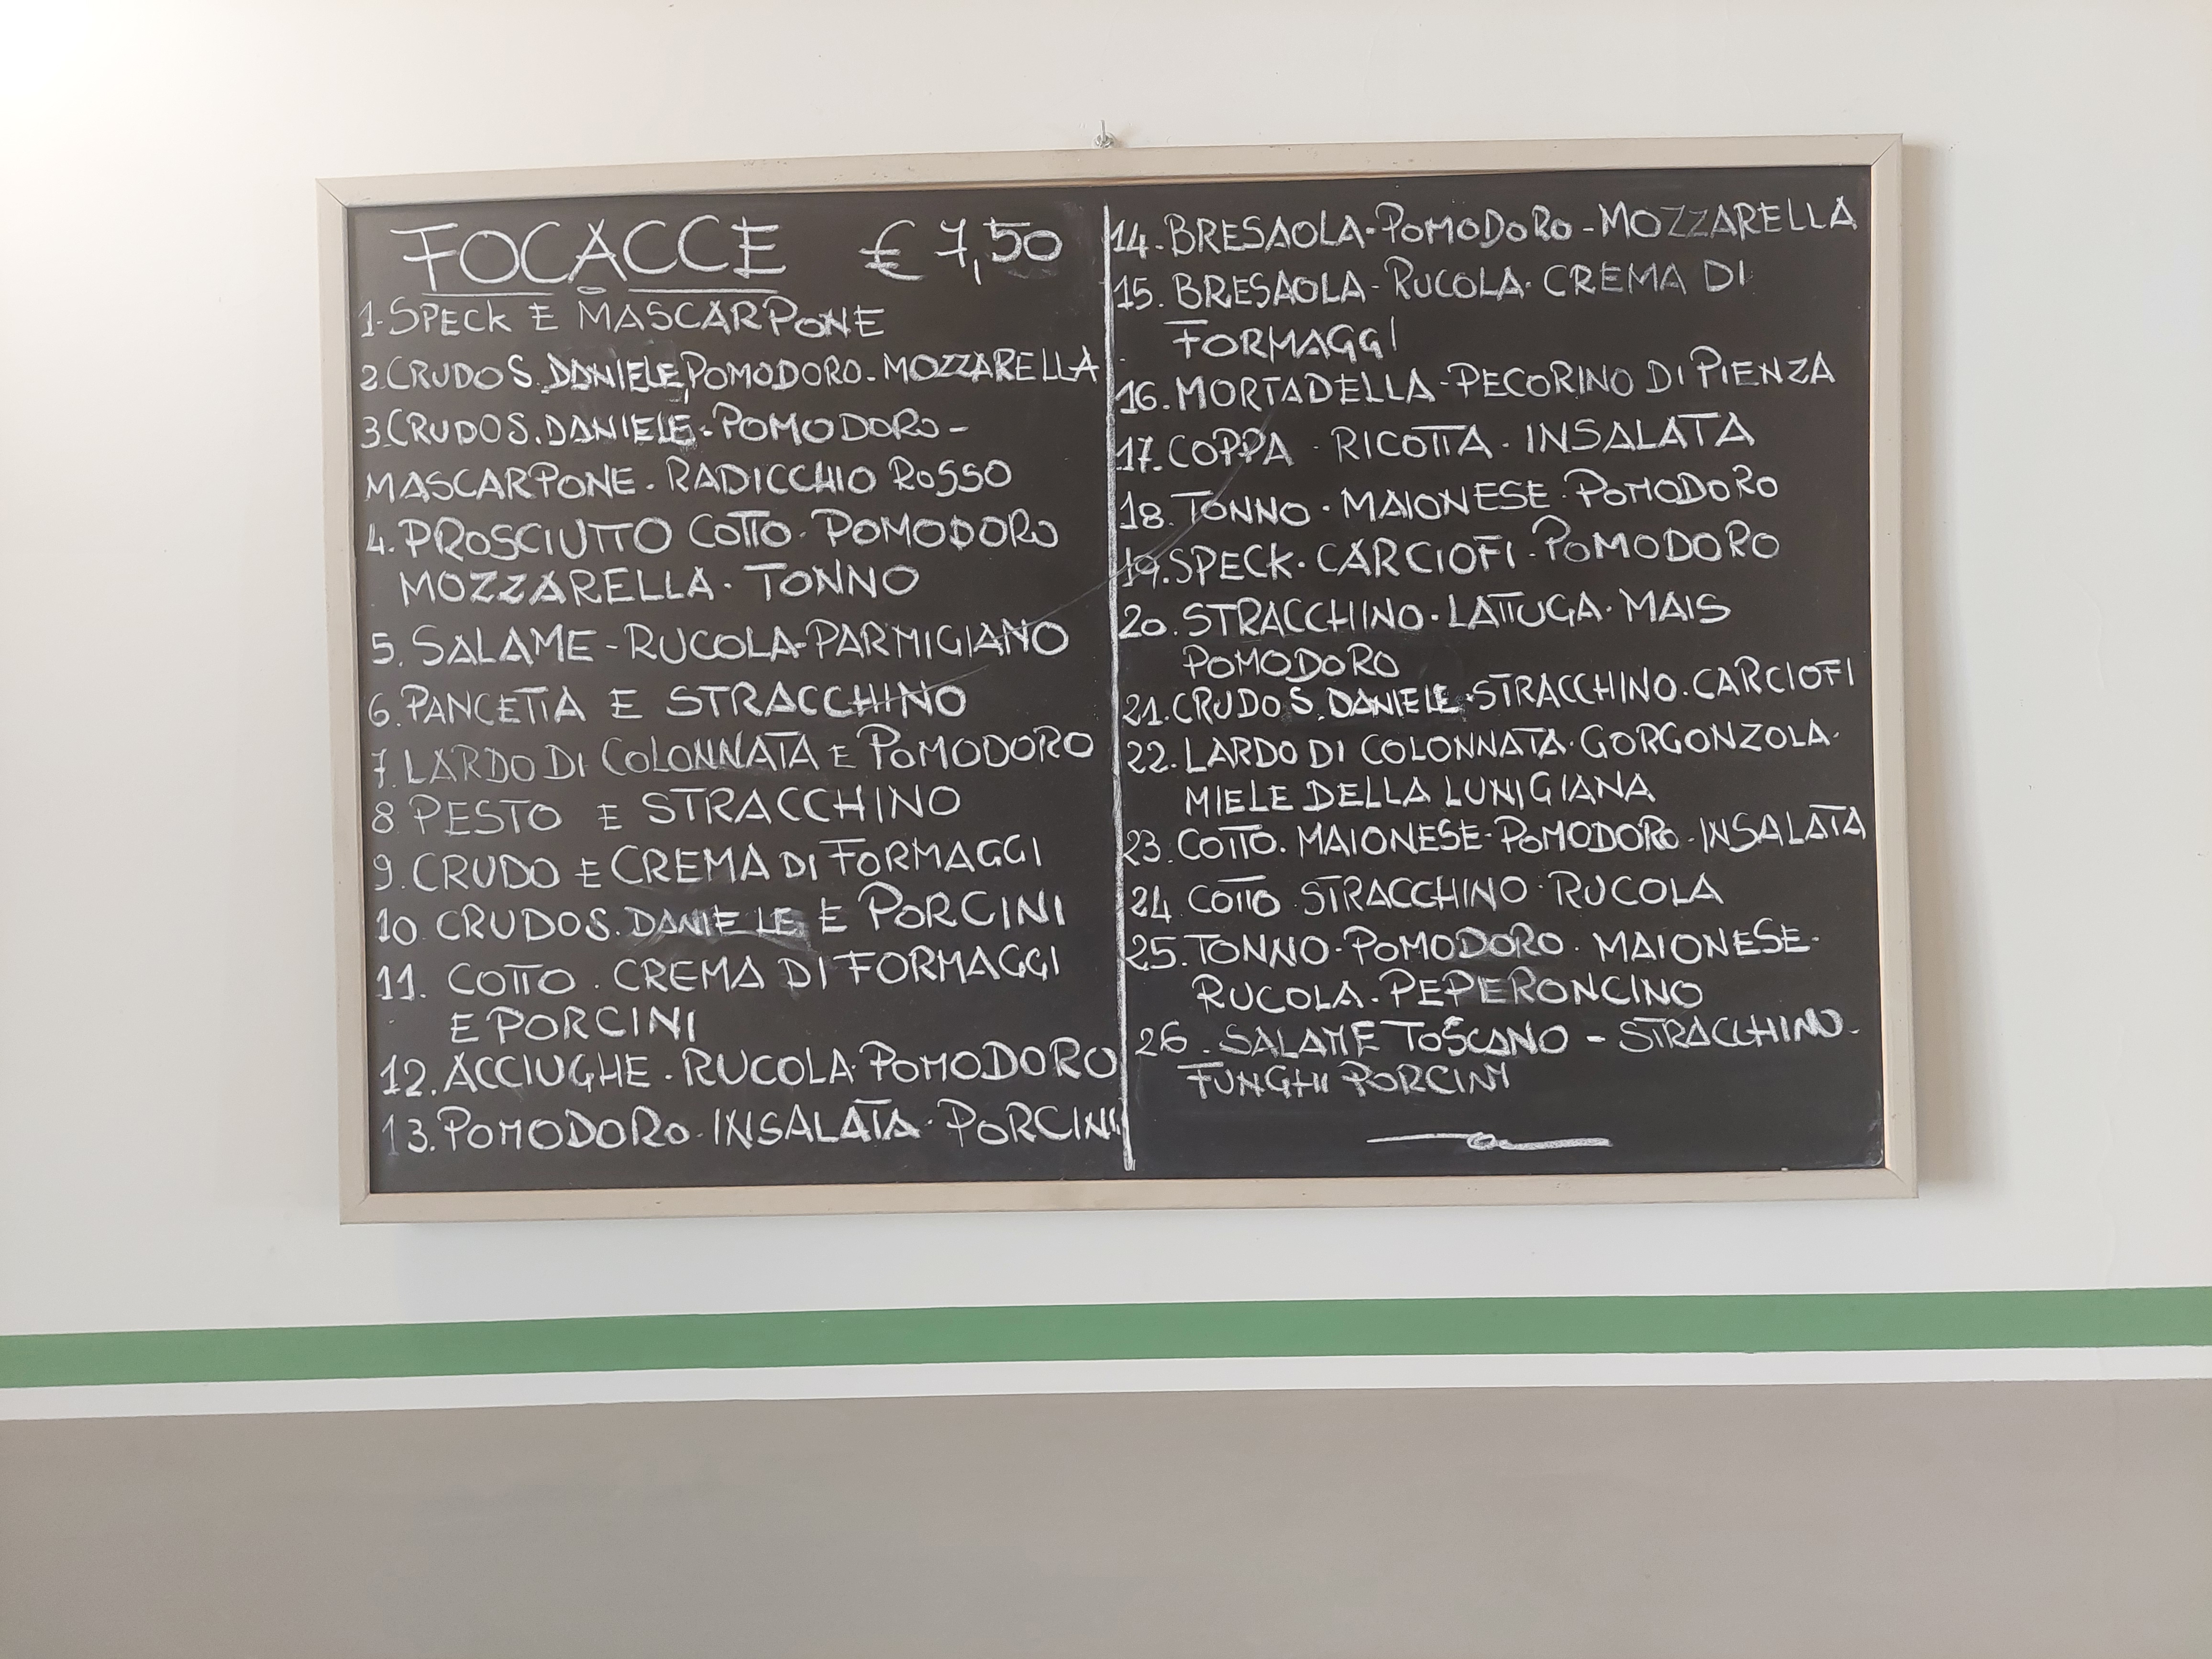 FOCACCE € 7,50
1-SPECK E MASCARPONE
2.CRUDO S.DANIELE,POMODORO-MOZZARELLA
3.CRUDO S.DANIELE-POMODORO-
MASCARPONE-RADICCHIO ROSSO
4.PROSCIUTTO COTTO-POMODORO
MOZZARELLA-TONNO
5.SALAME-RUCOLA-PARMIGIANO
6.PANCETTA E STRACCHINO
7.LARDO DI COLONNATA E POMODORO
8 PESTO E STRACCHINO
9.CRUDO E CREMA DI FORMAGGI
10 CRUDO S.DANIELE E PORCINI
11. COTTO. CREMA DI FORMAGGI
E PORCINI
12.ACCIUGHE-RUCOLA-POMODORO
13.POMODORO-INSALATA-PORCINI
14-BRESAOLA-POMODORO-MOZZARELLA
15. BRESAOLA-RUCOLA-CREMA DI
FORMAGGI
16.MORTADELLA-PECORINO DI PIENZA
17.COPPA-RICOTTA-INSALATA
18.TONNO-MAIONESE-POMODORO
19.SPECK-CARCIOFI-POMODORO
20.STRACCHINO-LATTUGA-MAIS
POMODORO
21.CRUDO S.DANIELE-STRACCHINO-CARCIOFI
22.LARDO DI COLONNATA-GORGONZOLA-
MIELE DELLA LUNIGIANA
23.COTTO-MAIONESE-POMODORO-INSALATA
24 COTTO STRACCHINO-RUCOLA
25.TONNO-POMODORO-MAIONESE-
RUCOLA-PEPERONCINO
26.SALAME TOSCANO-STRACCHINO-
FUNGHI PORCINI